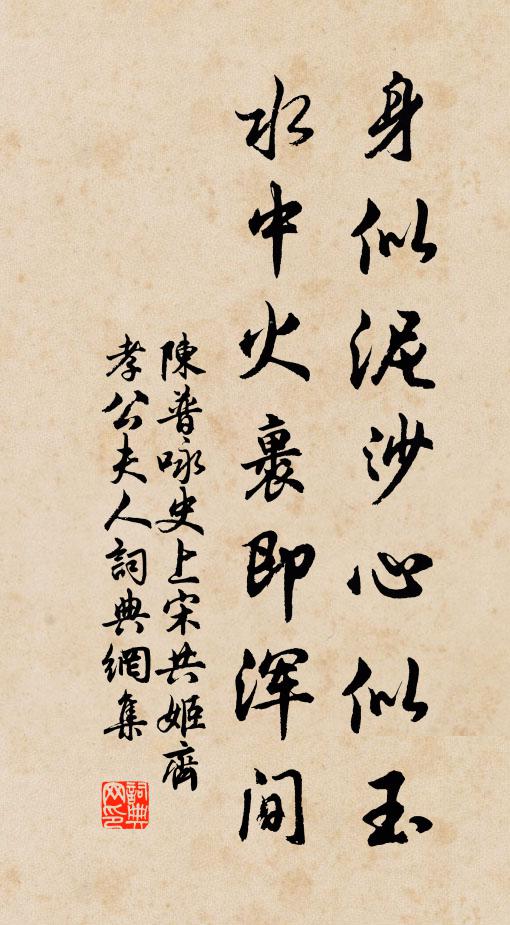 身似泥沙心似玉
水中火裏即浑间
陳普咏史上宋共姬齊
孝公夫人詞典網集
詞典网印